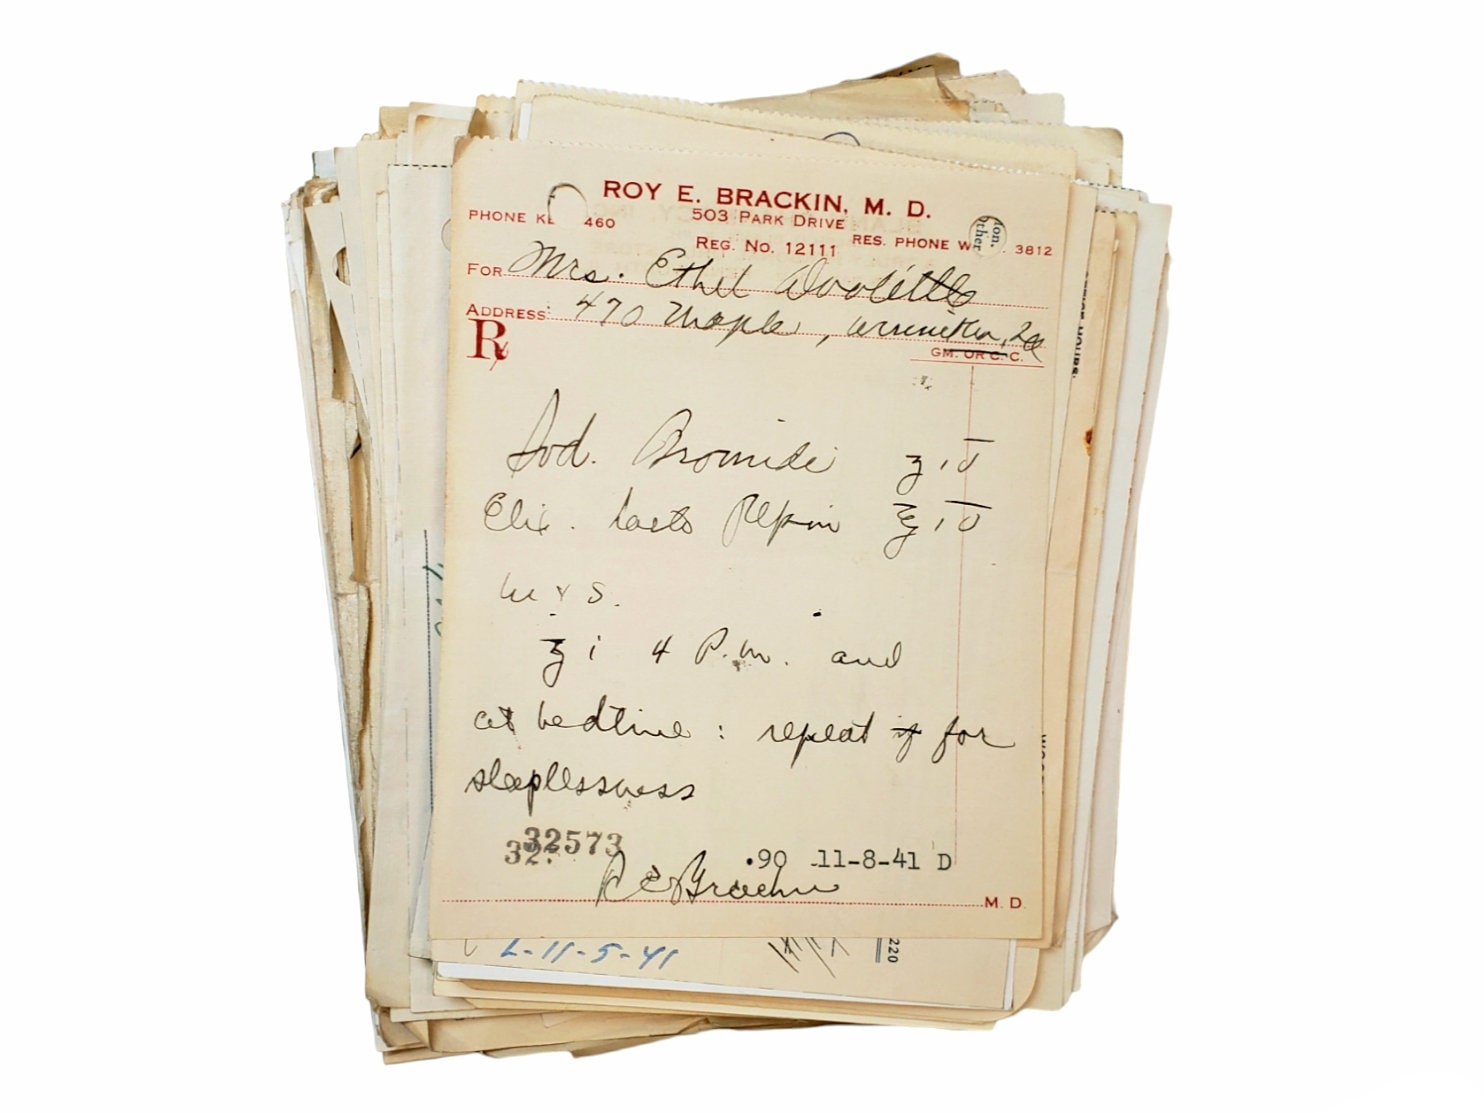 ROY E. BRACKIN, M. D.
503 PARK DRIVE
PHONE KE 460
REG. NO. 12111
RES. PHONE W 3812
ton.
ther
FOR Mrs. Ethel
ADDRESS: 470 Maple,
Rx
GM. OR C. C.
Sod. Bromide ʒ i
Elix. Lacto Pepsin ℥ i
M & S.
ʒ i 4 P.M. and
at bedtime : repeat if for
sleeplessness
32573
32.
.90 11-8-41 D
R E Brackin
M. D.
L-11-5-41
220